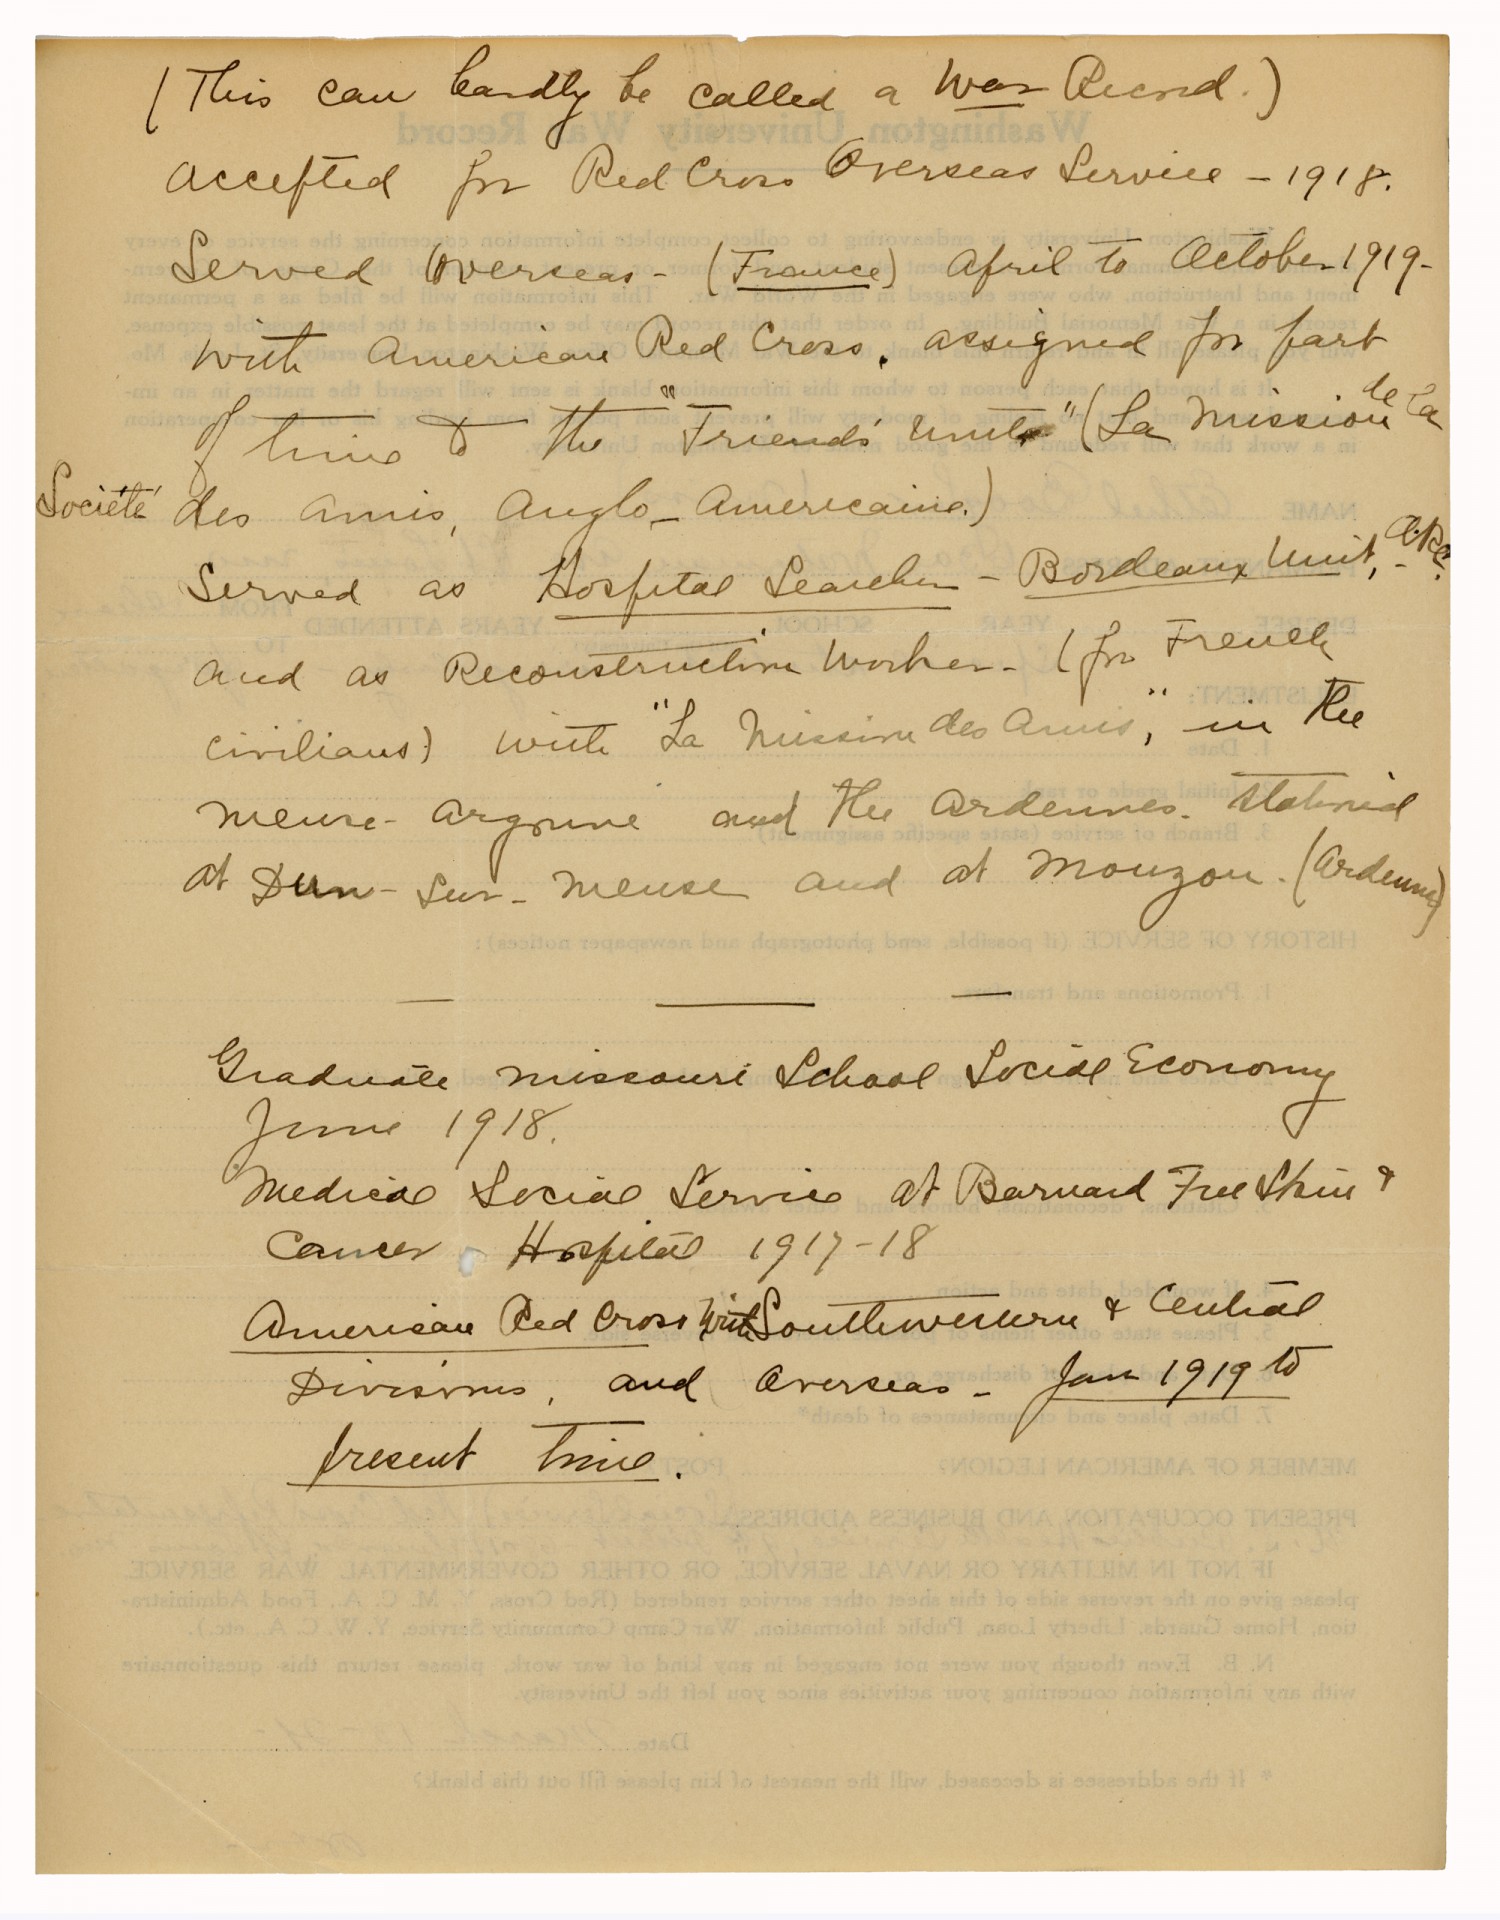 (This can hardly be called a War Record.)
Accepted for Red Cross Overseas Service - 1918.
Served Overseas - (France) April to October 1919 -
with American Red Cross, assigned for part
of time to the "Friends' Unit" (La Mission de la
Société des Amis, Anglo-Americaine.)
Served as Hospital Searcher - Bordeaux Unit, - A.R.C.
and as Reconstruction Worker - (for French
civilians) with "La Mission des Amis", in the
Meuse-Argonne and the Ardennes. Stationed
at Dun-sur-Meuse and at Mouzon. (Ardennes)
Graduate Missouri School Social Economy
June 1918.
Medical Social Service at Barnard Free Skin &
Cancer Hospital 1917-18
American Red Cross with Southwestern & Central
Divisions, and Overseas - Jan 1919 to
present time.